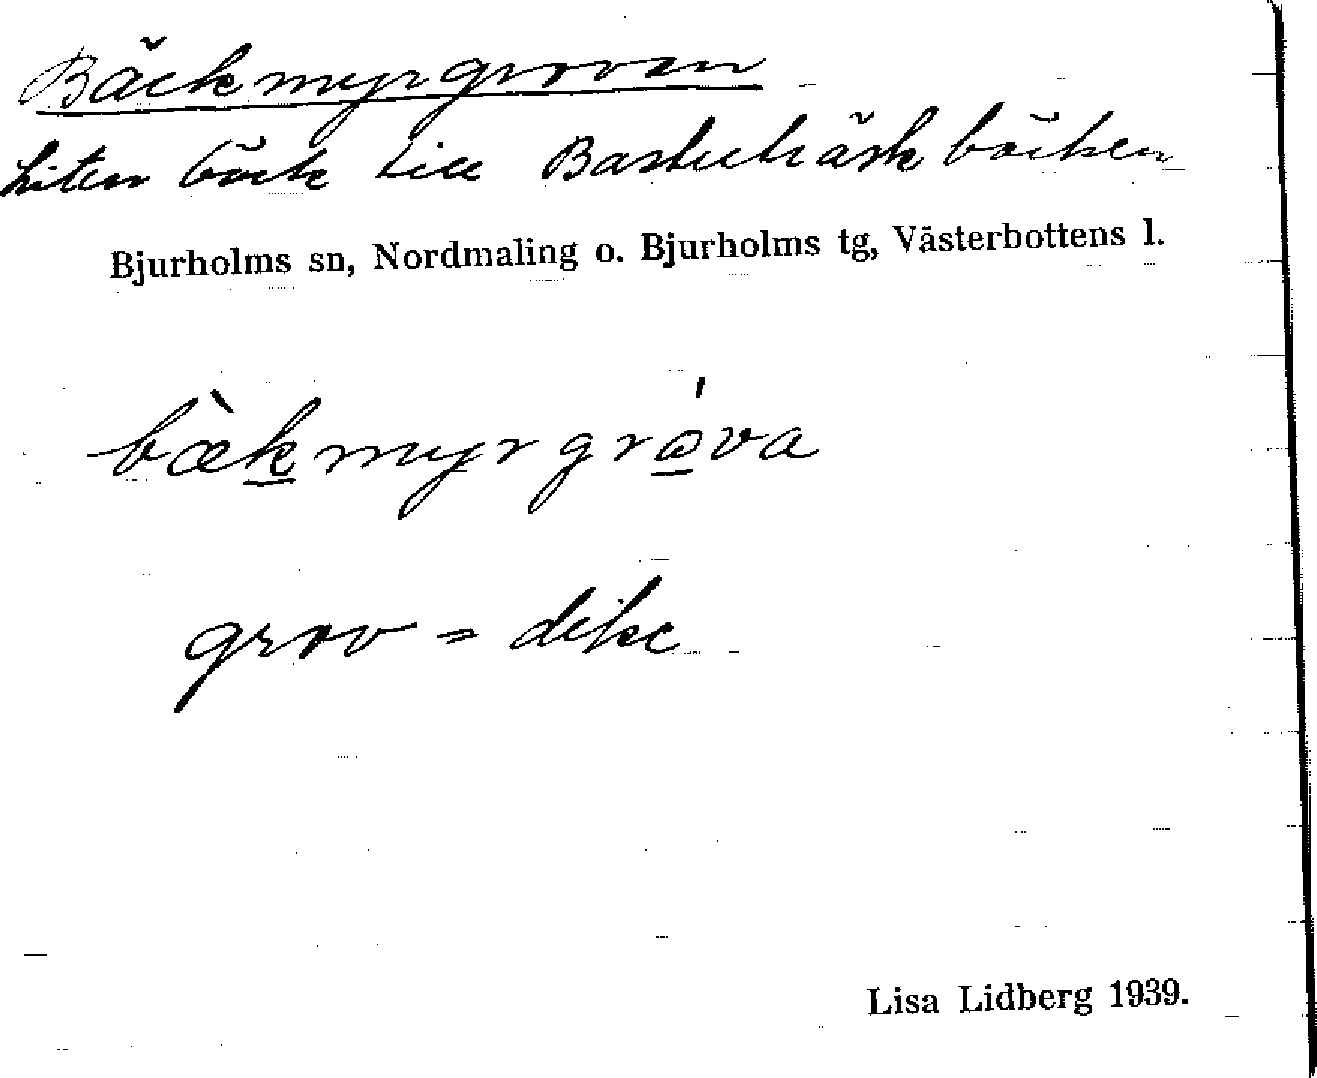 Bäckmyrgroven
Liten bäck till Bastuträskbäcken
Bjurholms sn, Nordmaling o. Bjurholms tg, Västerbottens l.
bækmyrgrøva
grov = dike
Lisa Lidberg 1939.